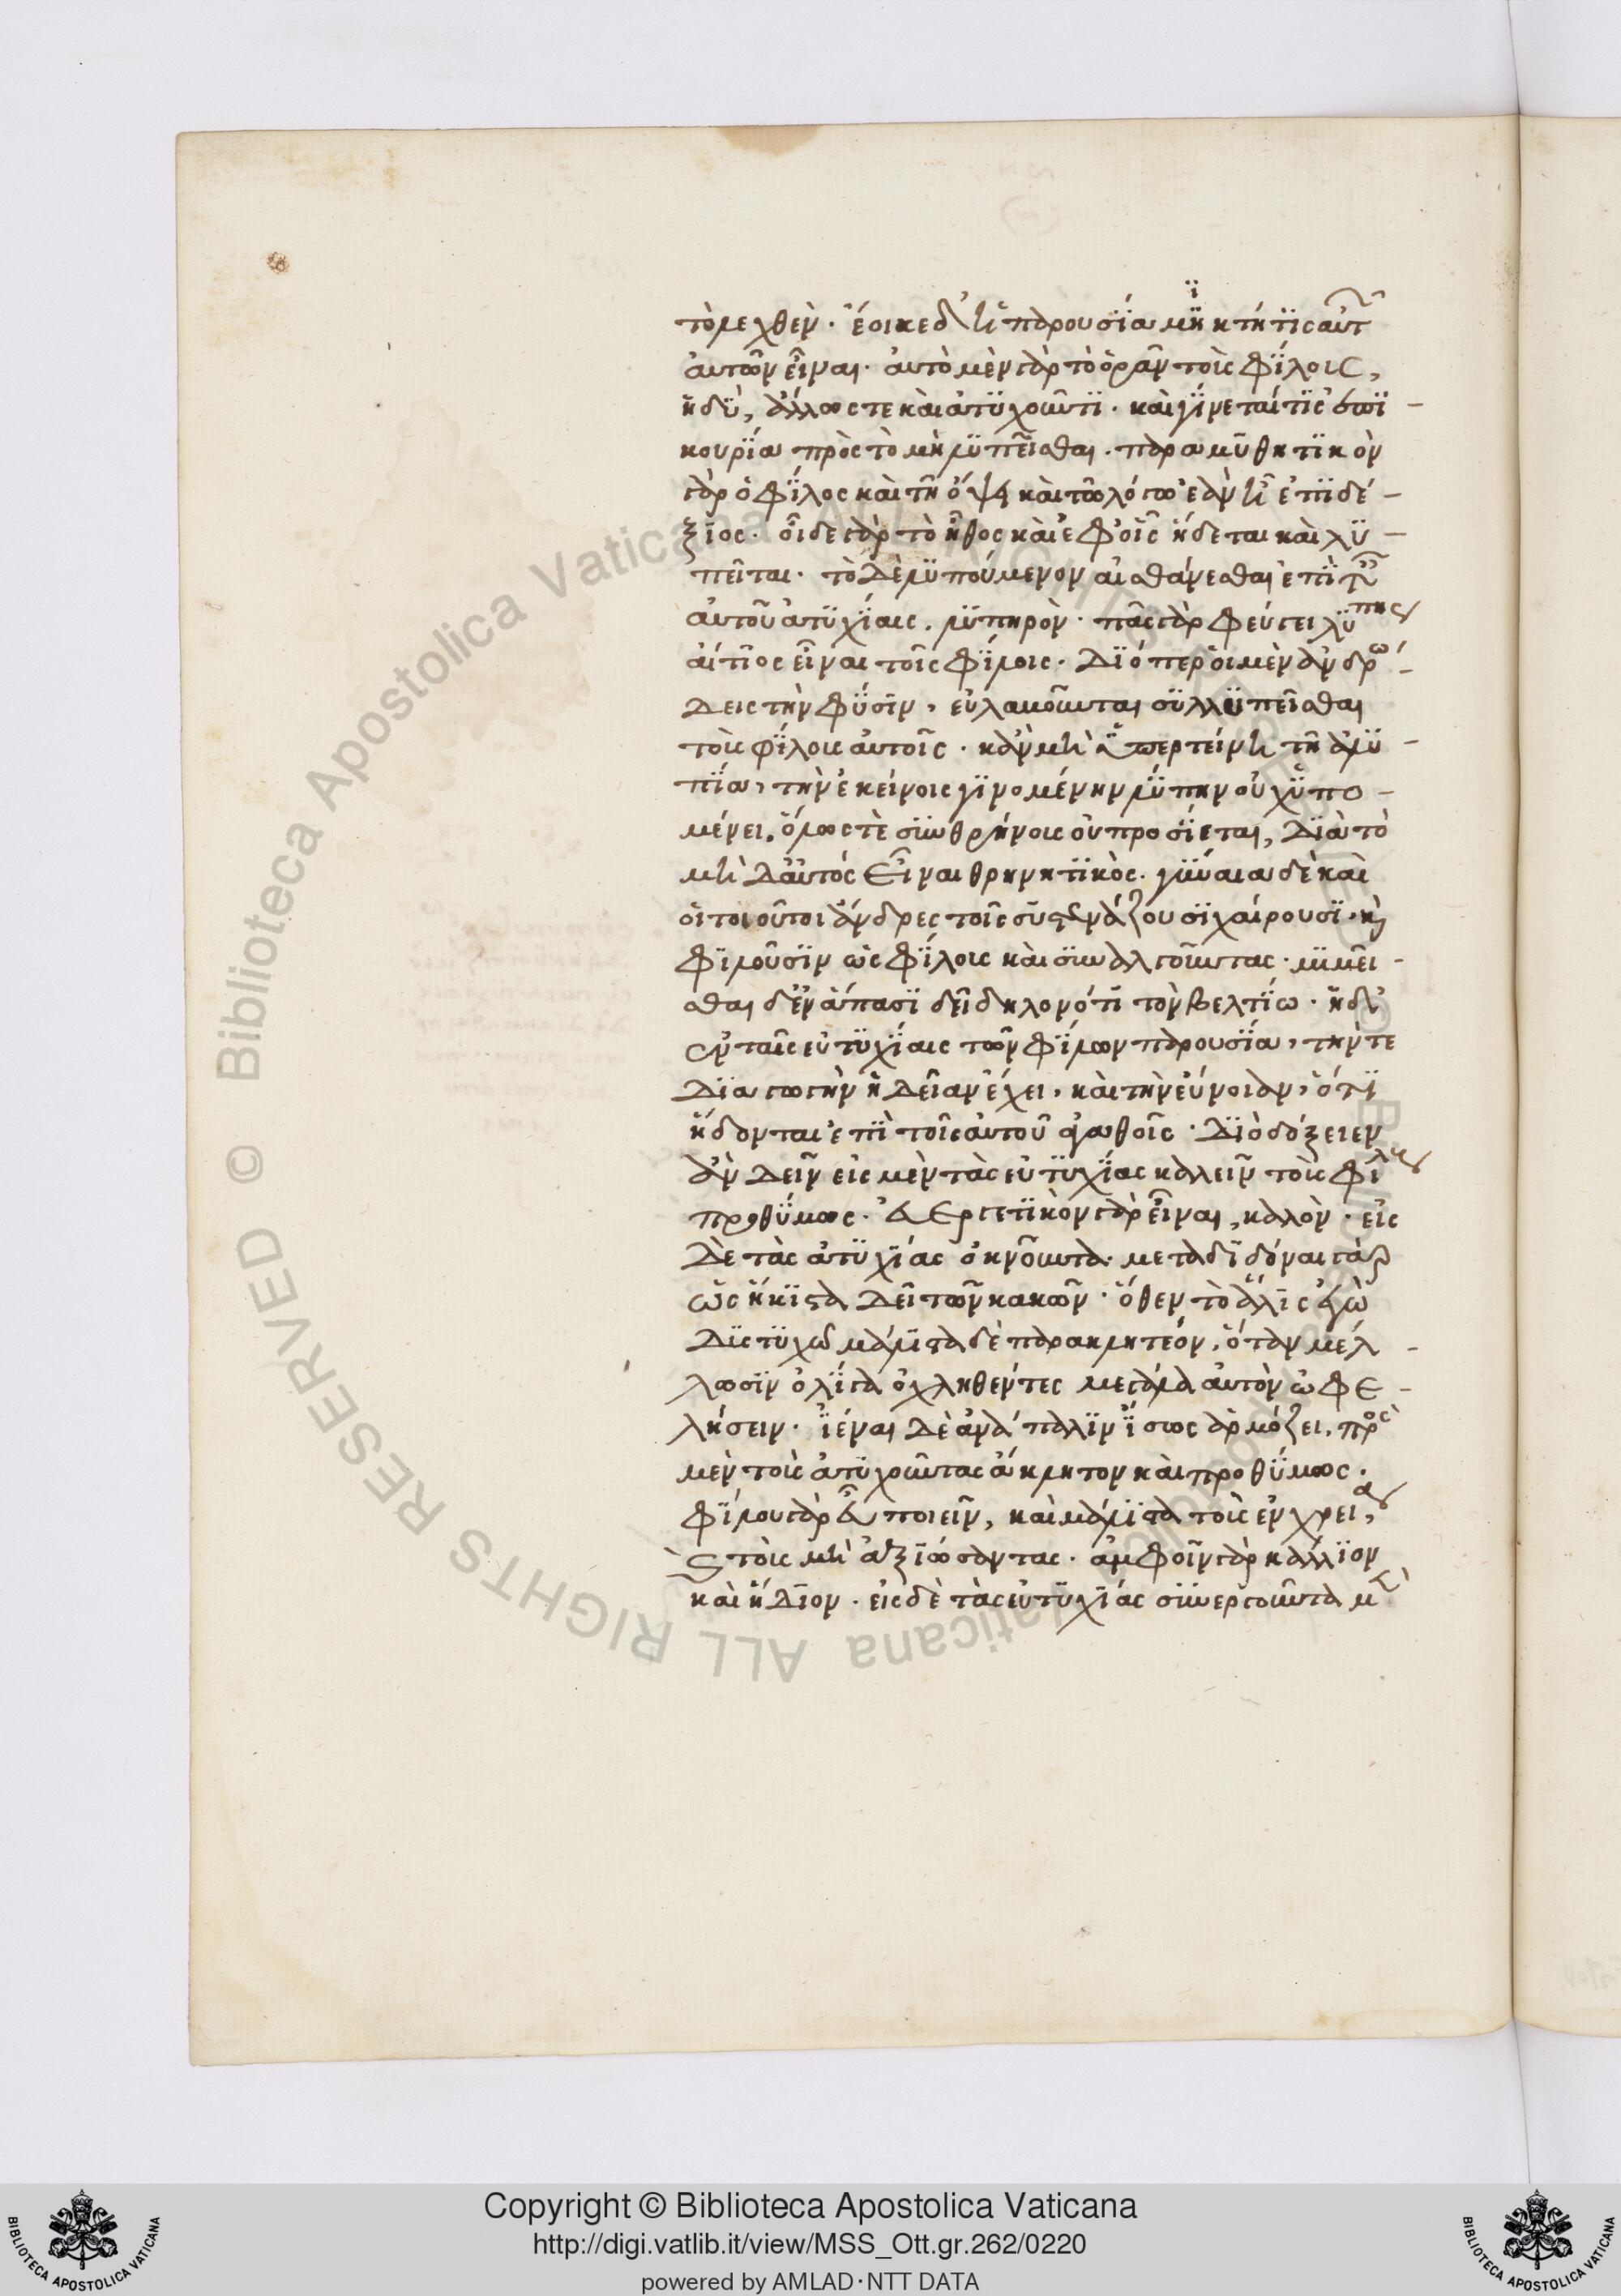 τὸ λεχθέν. ἔοικε δ' ἡ παρουσία μικτή τις αὐτ
αὐτῶν εἶναι. αὐτὸ μὲν γὰρ τὸ ὁρᾶν τοὺς φίλους,
ἡδύ, ἄλλως τε καὶ ἀτυχοῦντι. καὶ γίνεταί τις ἐπι-
κουρία πρὸς τὸ μὴ λυπεῖσθαι. παραμυθητικὸν
γὰρ ὁ φίλος καὶ τῇ ὄψει καὶ τῷ λόγῳ ἐὰν ᾖ ἐπιδέ-
ξιος. οἶδε γὰρ τὸ ἦθος καὶ ἐφ' οἷς ἥδεται καὶ λυ-
πεῖται. τὸ δὲ λυπούμενον αἰσθάνεσθαι ἐπὶ τ
αὐτοῦ ἀτυχίαις, λυπηρόν. πᾶς γὰρ φεύγει λύπης
αἴτιος εἶναι τοῖς φίλοις. διόπερ οἱ μὲν ἀνδρώ-
δεις τὴν φύσιν, εὐλαβοῦνται συλλυπεῖσθαι
τοὺς φίλους αὐτοῖς. κἂν μὴ ὑπερτείνῃ τῇ ἀλυ-
πίᾳ, τὴν ἐκείνοις γινομένην λύπην οὐχ ὑπο-
μένει. ὅλως τὲ συνθρήνους οὐ προσίεται, διὰ τὸ
μὴ δ' αὐτὸς εἶναι θρηνητικός. γύναια δὲ καὶ
οἱ τοιοῦτοι ἄνδρες τοῖς συστενάζουσι χαίρουσι. καὶ
φιλοῦσιν ὡς φίλους καὶ συναλγοῦντας. μιμεῖ-
σθαι δ' ἐν ἅπασι δεῖ δηλονότι τὸν βελτίω. ἡ δ'
ἐν ταῖς εὐτυχίαις τῶν φίλων παρουσία, τήν τε
διαγωγὴν ἡδεῖαν ἔχει, καὶ τὴν εὔνοιαν, ὅτι
ἥδονται ἐπὶ τοῖς αὐτοῦ ἀγαθοῖς. διὸ δόξειεν
ἂν δεῖν εἰς μὲν τὰς εὐτυχίας καλεῖν τοὺς φίλους
προθύμως. εὐεργετικὸν γὰρ εἶναι, καλόν. εἰς
δὲ τὰς ἀτυχίας ὀκνοῦντα. μεταδιδόναι γὰρ
ὡς ἥκιστα δεῖ τῶν κακῶν. ὅθεν τὸ ἅλις ἐγὼ
δυστυχῶ μάλιστα δὲ παρακλητέον, ὅταν μέλ-
λωσιν ὀλίγα ὀχληθέντες μεγάλα αὐτὸν ὠφε-
λήσειν. ἰέναι δὲ ἀνάπαλιν ἴσως ἁρμόζει, πρὸς
μὲν τοὺς ἀτυχοῦντας ἄκλητον καὶ προθύμως.
φίλου γὰρ εὖ ποιεῖν, καὶ μάλιστα τοὺς ἐν χρείᾳ,
καὶ τοὺς μὴ ἀξιώσαντας. ἀμφοῖν γὰρ κάλλιον
καὶ ἥδιον. εἰς δὲ τὰς εὐτυχίας συνεργοῦντα μ
Copyright © Biblioteca Apostolica Vaticana
http://digi.vatlib.it/view/MSS_Ott.gr.262/0220
powered by AMLAD·NTT DATA
BIBLIOTECA APOSTOLICA VATICANA
BIBLIOTECA APOSTOLICA VATICANA